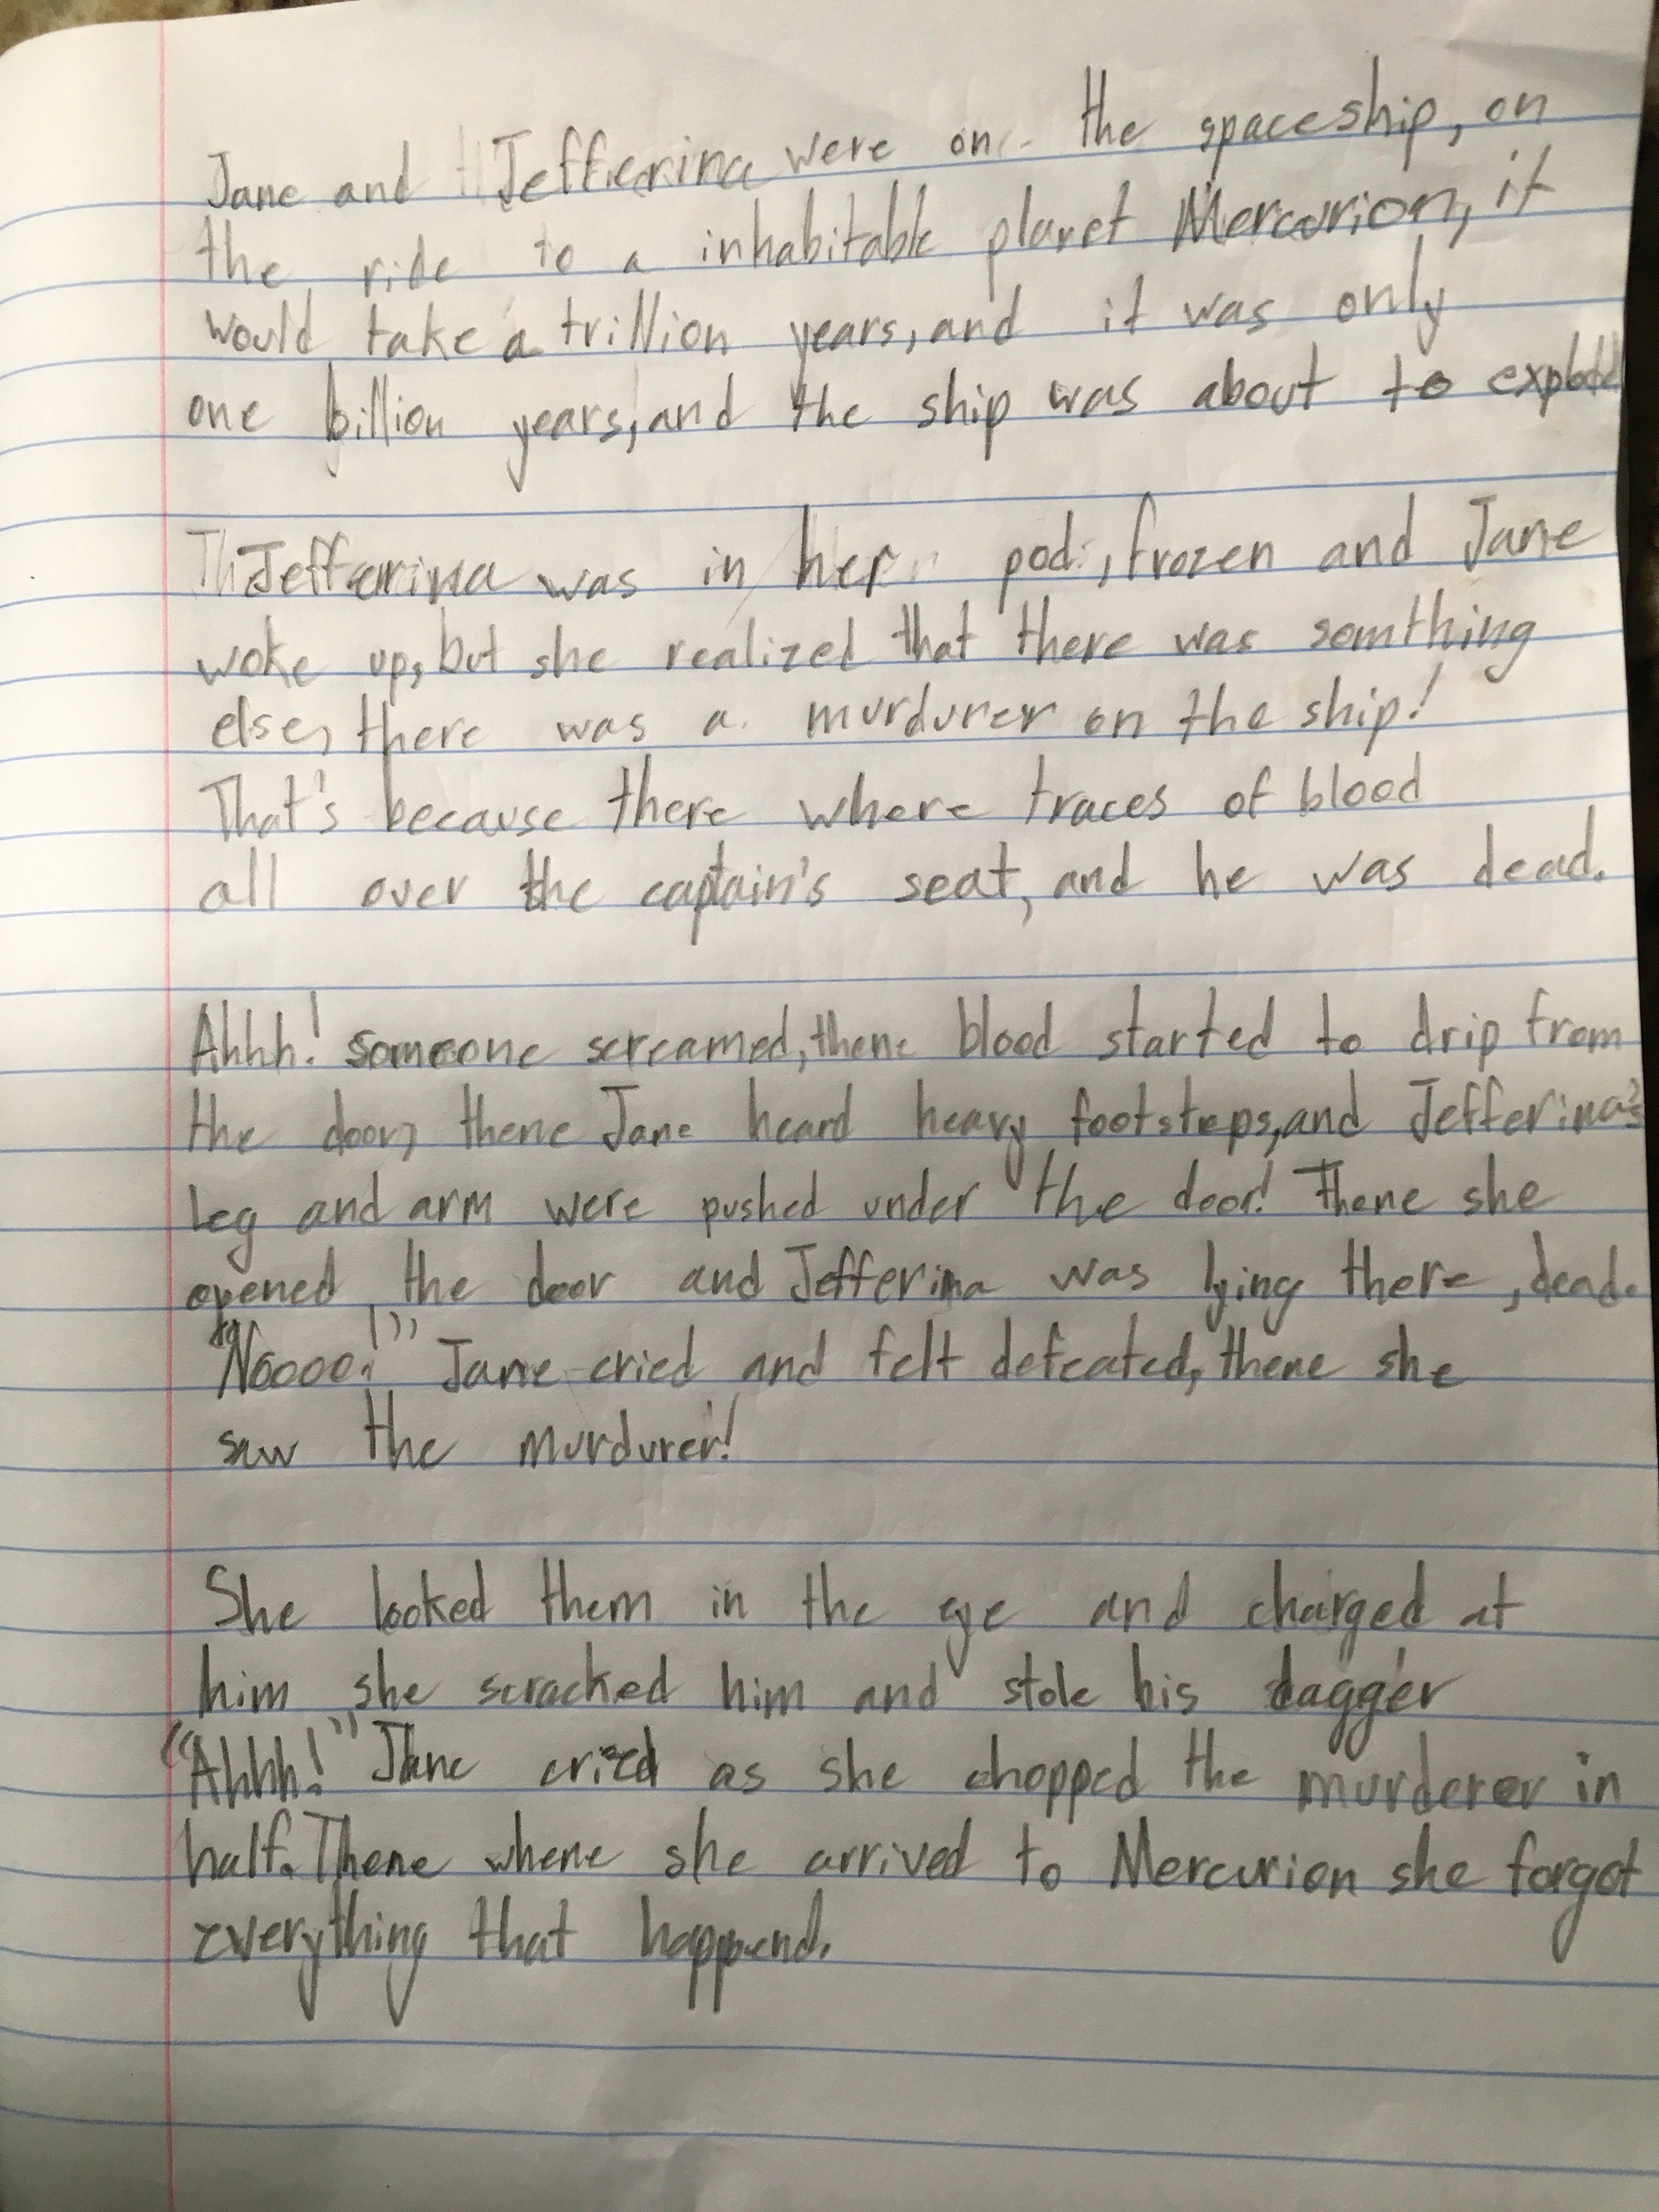 Jane and Jefferina were on the spaceship, on
the ride to a inhabitable planet Mercurion, it
would take a trillion years, and it was only
one billion years, and the ship was about to explode
Jefferina was in her pod, frozen and Jane
woke up, but she realized that there was somthing
else, there was a murdurer on the ship!
That's because there where traces of blood
all over the captain's seat, and he was dead.
Ahhh! someone screamed, thene blood started to drip from
the door, thene Jane heard heavy footsteps, and Jefferina's
Leg and arm were pushed under the door! Thene she
opened the door and Jefferina was lying there, dead.
"Noooo!" Jane cried and felt defeated, thene she
saw the murdurer!
She looked them in the eye and charged at
him she scracked him and stole his dagger
"Ahhh!" Jane cried as she chopped the murderer in
half. Thene whene she arrived to Mercurion she forgot
everything that happend.